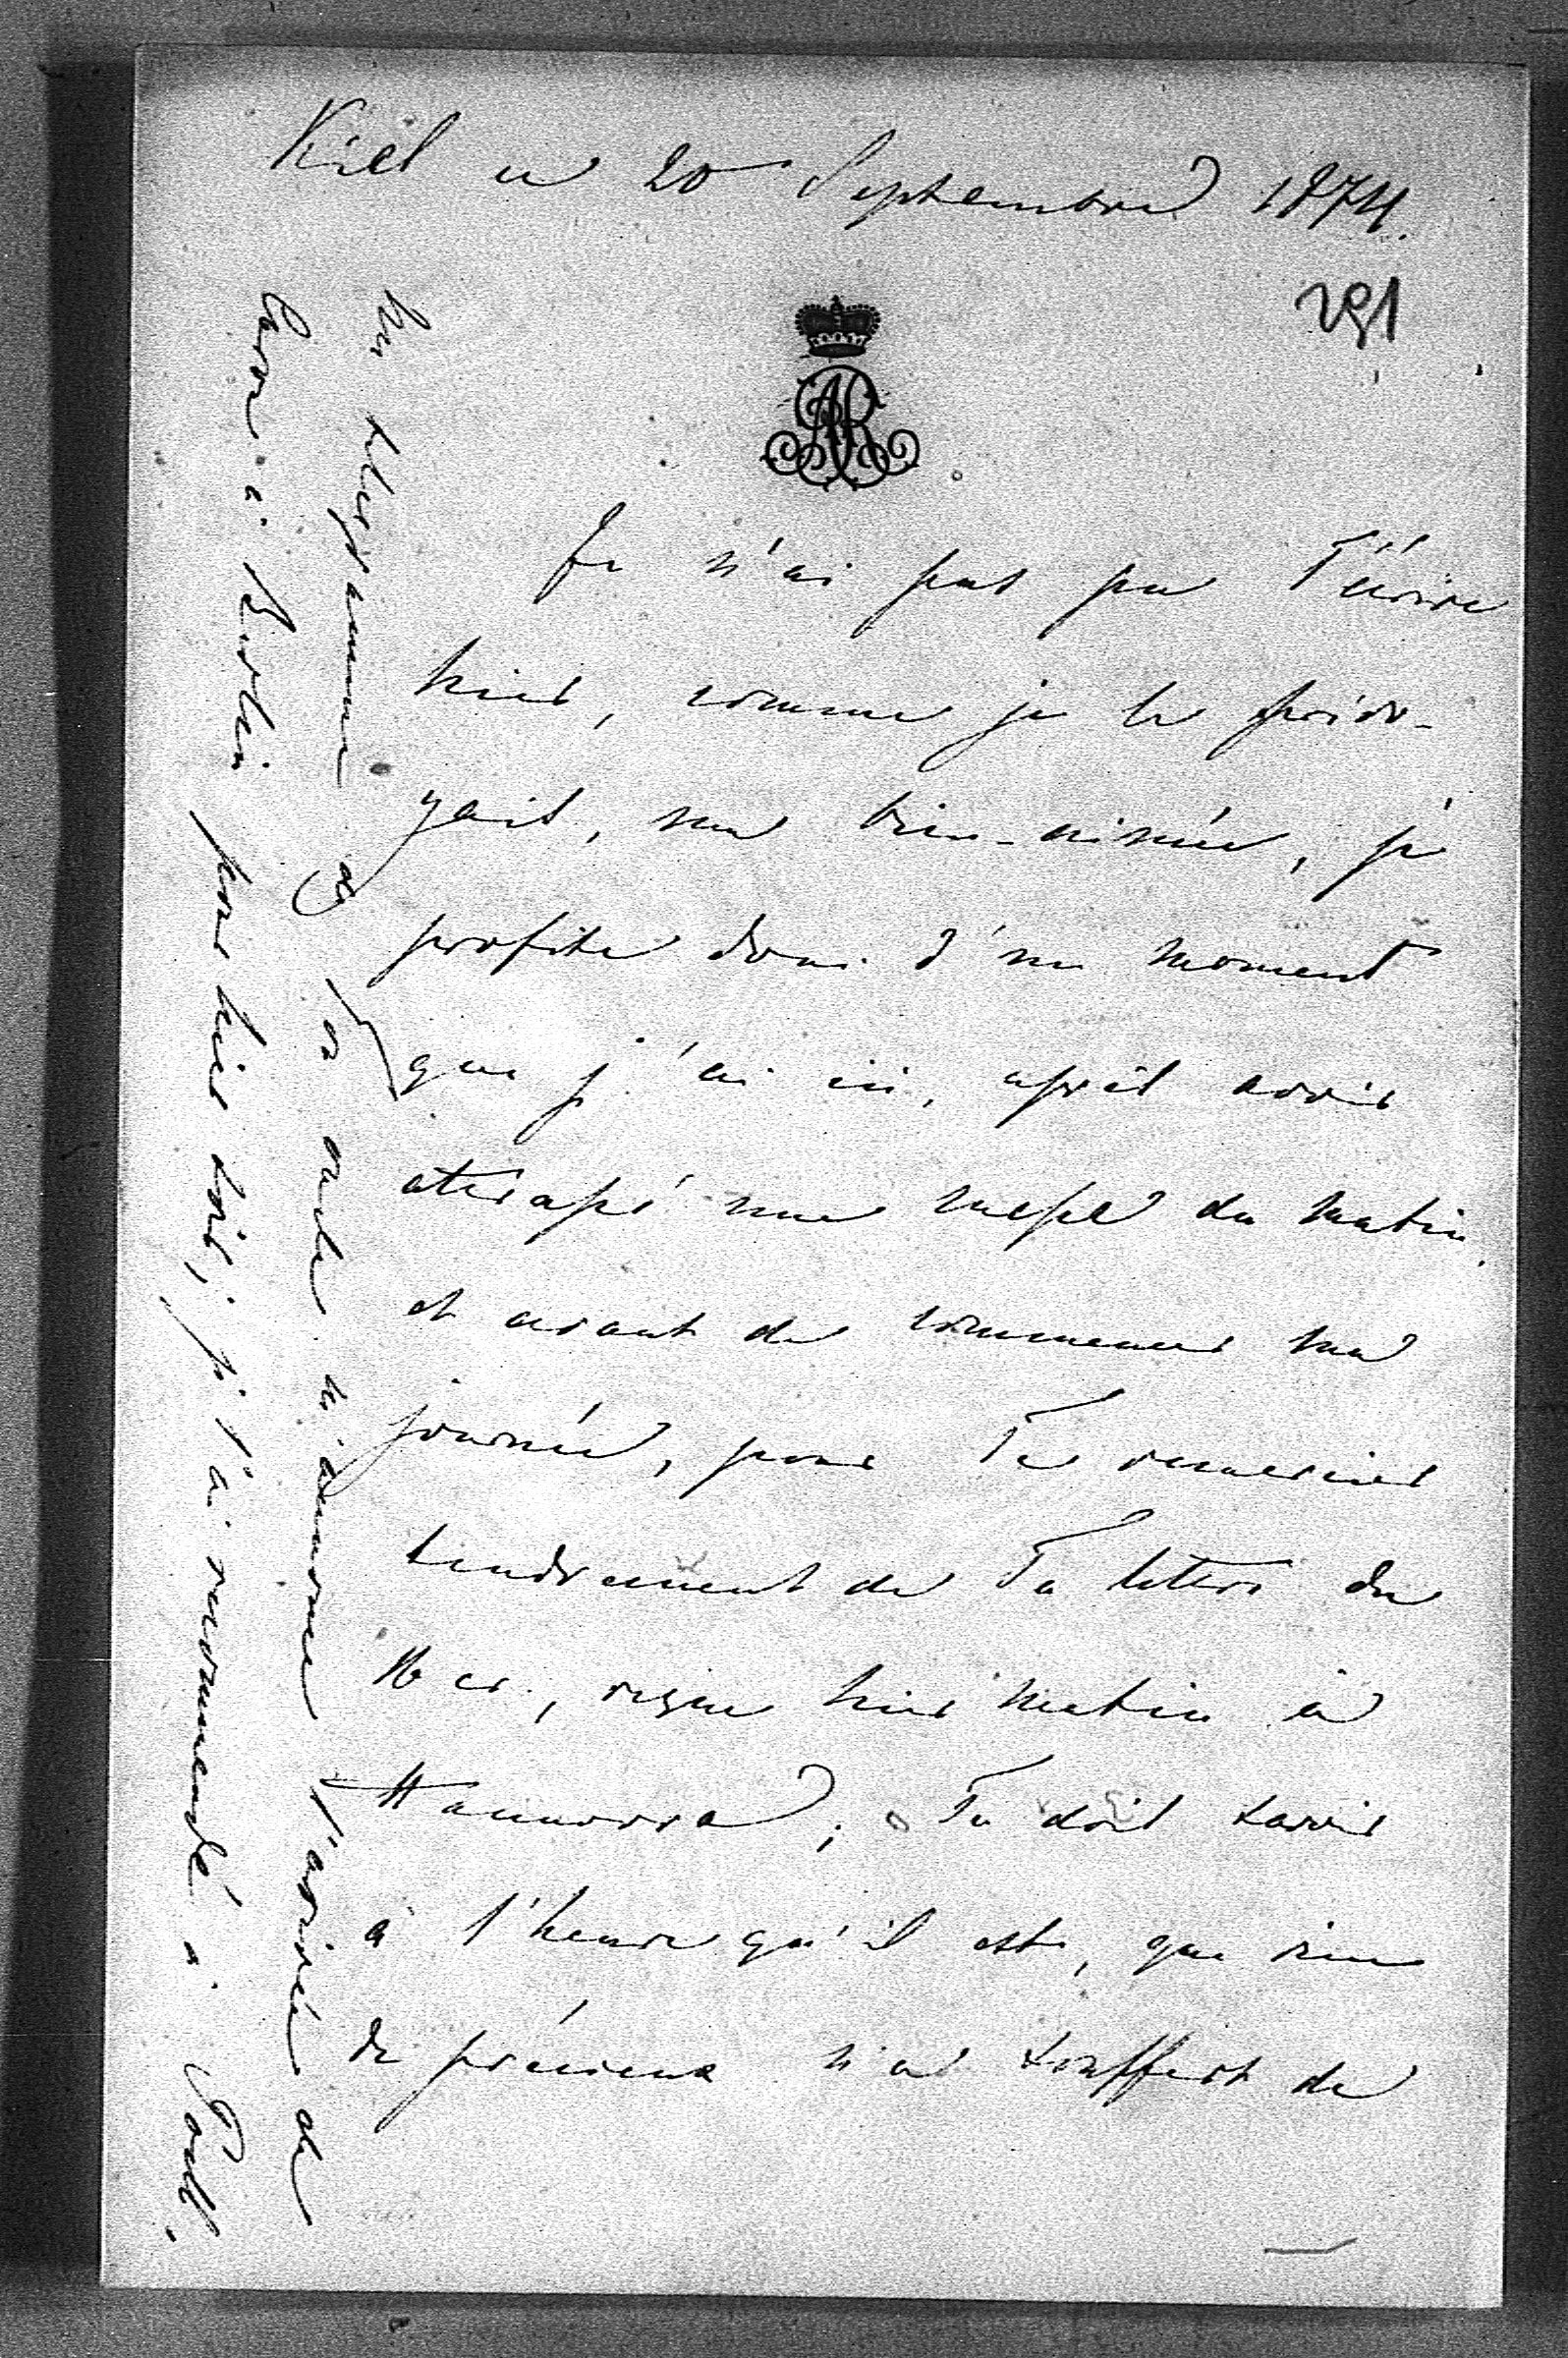 Kiel ce 20 Septembre 1874.
291
Je n'ai pas pu T'écrire
hier, comme je le prévo-
yais, ma bien-aimée, je
profite donc d'un moment
que j'ai ici, après avoir
attrapé une messe du matin
et avant de commencer ma
journée, pour Te remercier
tendrement de Ta lettre du
16 cr., reçue hier matin à
Hannovre; Tu dois savoir
à l'heure qu'il est, que rien
de précieux n'a souffert de
Un télégramme de
m'annonce l'arrivée de
Caro à Berlin pour hier soir, je l'ai recommandé à